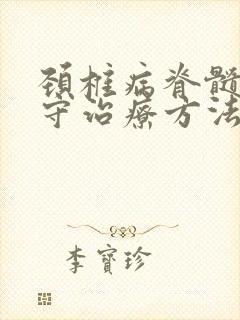 頚椎病脊髓
守治療方法
李寳珍